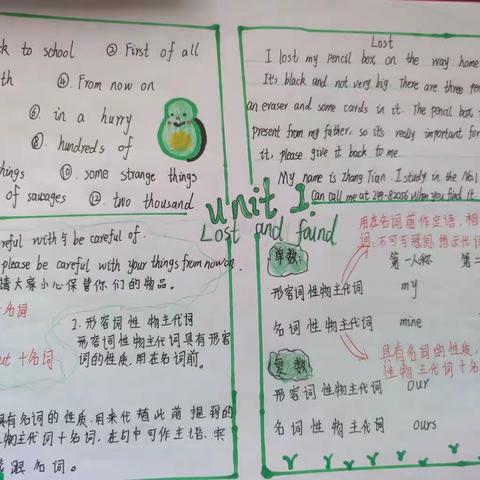 ck to school ② First of all
th ④ From now on
⑥ in a hurry
⑧ hundreds of
hings ⑩ some strange things
of sausages ⑫ two thousand
Lost
I lost my pencil box on the way home
It's black and not very big. There are three pen
an eraser and some cards in it. The pencil box
present from my father, so it's really important for
it, please give it back to me.
My name is Zhang Tian. I study in the No.1
Can call me at 299-82056 when you find it
unit 1.
Lost and found
areful with与 be careful of.
please be careful with your things from now on.
请大家小心保管你们的物品。
名词
2. 形容词性物主代词
形容词性物主代词具有形容
词的性质,用在名词前。
ut +名词
具有名词的性质,用来代替此前提到的
物主代词+名词,在句中可作主语、宾
跟名词。
用在名词前作定语,相
词,不可与冠词、指示代词
单数:
第一人称 第二
形容词性物主代词 my
名词性物主代词 mine
具有名词的性质,
性物主代词+名
复数
形容词性物主代词 our
名词性物主代词 ours